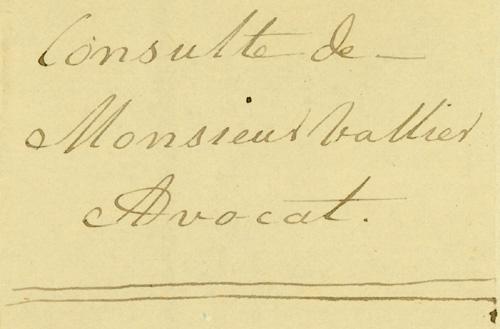 Consulte de —
Monsieur Vallier
Avocat.